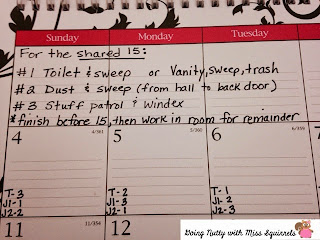 Sunday Monday Tuesday
For the shared 15:
#1 Toilet & sweep or Vanity, sweep, trash
#2 Dust & sweep (from hall to back door)
#3 Stuff patrol & windex
*finish before 15, then work in room for remainder
4 4/361 5 5/360 6 6/359
T-3 T-2 T-1
J1-1 J1-3 J1-2
J2-2 J2-1 J2-3
11 11/354 12
Going Nutty with Miss Squirrels